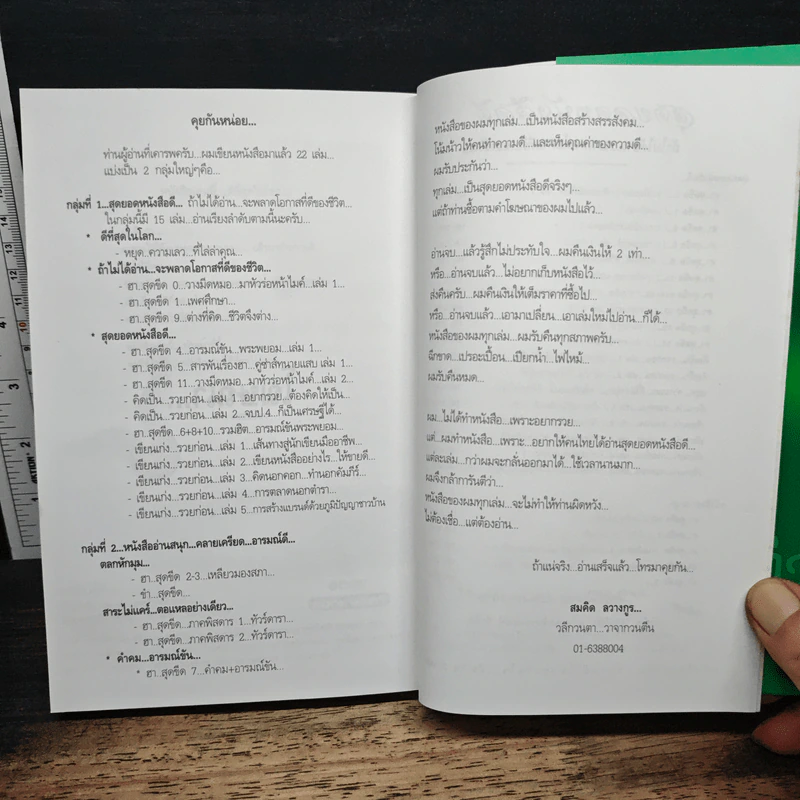 คุยกันหน่อย...
ท่านผู้อ่านที่เคารพครับ...ผมเขียนหนังสือมาแล้ว 22 เล่ม...
แบ่งเป็น 2 กลุ่มใหญ่ๆคือ...
กลุ่มที่ 1...สุดยอดหนังสือดี... ถ้าไม่ได้อ่าน...จะพลาดโอกาสที่ดีของชีวิต...
ในกลุ่มนี้มี 15 เล่ม...อ่านเรียงลำดับตามนี้นะครับ...
* ดีที่สุดในโลก...
- หยุด...ความเลว...ที่ไล่ล่าคุณ...
* ถ้าไม่ได้อ่าน...จะพลาดโอกาสที่ดีของชีวิต...
- ฮา..สุดขีด 0...วางมีดหมอ...มาหัวร่อหน้าไมค์...เล่ม 1...
- ฮา..สุดขีด 1...เพศศึกษา...
- ฮา..สุดขีด 9...ต่างที่คิด...ชีวิตจึงต่าง...
* สุดยอดหนังสือดี...
- ฮา..สุดขีด 4...อารมณ์ขัน...พระพยอม...เล่ม 1...
- ฮา..สุดขีด 5...สารพันเรื่องฮา...คู่ซ่าส์ทนายแสบ เล่ม 1...
- ฮา..สุดขีด 11...วางมีดหมอ...มาหัวร่อหน้าไมค์...เล่ม 2...
- คิดเป็น...รวยก่อน...เล่ม 1...อยากรวย...ต้องคิดให้เป็น...
- คิดเป็น...รวยก่อน...เล่ม 2...จบป.4...ก็เป็นเศรษฐีได้...
- ฮา..สุดขีด...6+8+10...รวมฮิต...อารมณ์ขันพระพยอม...
- เขียนเก่ง...รวยก่อน...เล่ม 1...เส้นทางสู่นักเขียนมืออาชีพ...
- เขียนเก่ง...รวยก่อน...เล่ม 2...เขียนหนังสืออย่างไร...ให้ขายดี...
- เขียนเก่ง...รวยก่อน...เล่ม 3...คิดนอกคอก...ทำนอกคัมภีร์...
- เขียนเก่ง...รวยก่อน...เล่ม 4...การตลาดนอกตำรา...
- เขียนเก่ง...รวยก่อน...เล่ม 5...การสร้างแบรนด์ด้วยภูมิปัญญาชาวบ้าน
กลุ่มที่ 2...หนังสืออ่านสนุก...คลายเครียด...อารมณ์ดี...
ตลกหักมุม...
- ฮา..สุดขีด 2-3...เหลียวมองสภา...
- ขำ...สุดขีด...
สาระไม่แคร์...ตอแหลอย่างเดียว...
- ฮา..สุดขีด...ภาคพิสดาร 1...ทัวร์ดารา...
- ฮา..สุดขีด...ภาคพิสดาร 2...ทัวร์ดารา...
* คำคม...อารมณ์ขัน...
* ฮา..สุดขีด 7...คำคม+อารมณ์ขัน...
หนังสือของผมทุกเล่ม...เป็นหนังสือสร้างสรรสังคม...
โน้มน้าวให้คนทำความดี...และเห็นคุณค่าของความดี...
ผมรับประกันว่า...
ทุกเล่ม...เป็นสุดยอดหนังสือดีจริงๆ...
แต่ถ้าท่านซื้อตามคำโฆษณาของผมไปแล้ว...
อ่านจบ...แล้วรู้สึกไม่ประทับใจ...ผมคืนเงินให้ 2 เท่า...
หรือ...อ่านจบแล้ว...ไม่อยากเก็บหนังสือไว้...
ส่งคืนครับ...ผมคืนเงินให้เต็มราคาที่ซื้อไป...
หรือ...อ่านจบแล้ว...เอามาเปลี่ยน...เอาเล่มใหม่ไปอ่าน...ก็ได้...
หนังสือของผมทุกเล่ม...ผมรับคืนทุกสภาพครับ...
ฉีกขาด...เปรอะเปื้อน...เปียกน้ำ...ไฟไหม้...
ผมรับคืนหมด...
ผม...ไม่ได้ทำหนังสือ...เพราะอยากรวย...
แต่...ผมทำหนังสือ...เพราะ...อยากให้คนไทยได้อ่านสุดยอดหนังสือดี...
แต่ละเล่ม...กว่าผมจะกลั่นออกมาได้...ใช้เวลานานมาก...
ผมจึงกล้าการันตีว่า...
หนังสือของผมทุกเล่ม...จะไม่ทำให้ท่านผิดหวัง...
ไม่ต้องเชื่อ...แต่ต้องอ่าน...
ถ้าแน่จริง...อ่านเสร็จแล้ว...โทรมาคุยกัน...
สมคิด ลวางกูร...
วลีกวนตา...วาจากวนตีน
01-6388004